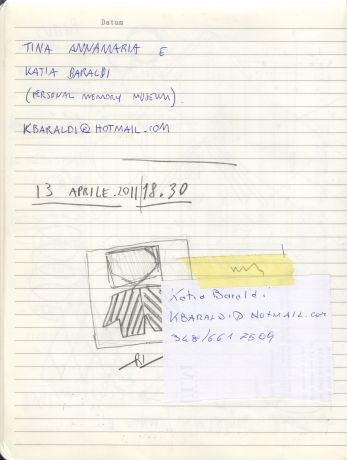 Datum
TINA ANNAMARIA E
KATIA BARALDI
(PERSONAL MEMORY MUSEUM).
KBARALDI@HOTMAIL.COM
13 APRILE.2011/18.30
Katia Baraldi
KBARALDI@HOTMAIL.com
348/661 2509